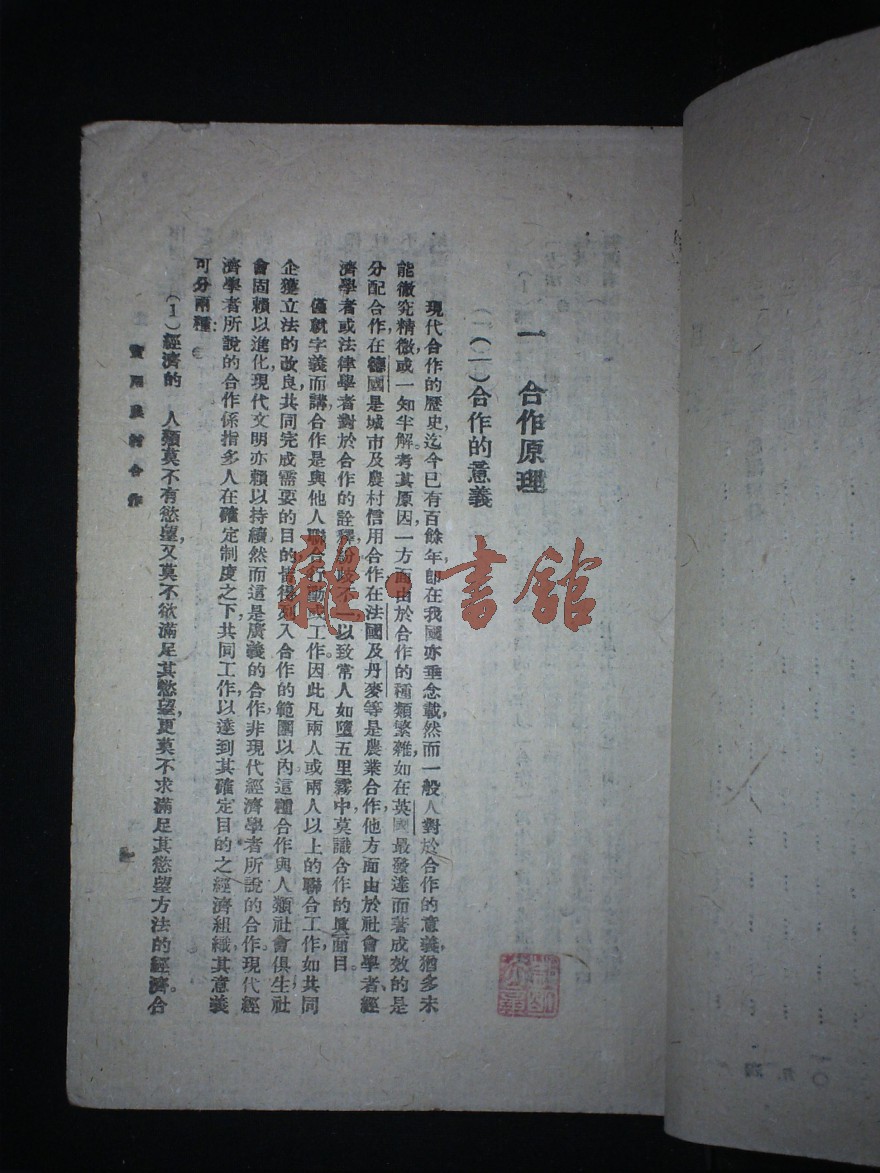 一　合作原理
（一（二）合作的意義
現代合作的歷史，迄今已有百餘年，卽在我國亦垂念載，然而一般人對於合作的意義，猶多未
能徹究精微，或一知半解。考其原因，一方面由於合作的種類繁雜，如在英國最發達而著成效的是
分配合作，在德國是城市及農村信用合作，在法國及丹麥等是農業合作，他方面由於社會學者，經
濟學者或法律學者對於合作的詮釋，紛歧不一，以致常人如墮五里霧中，莫識合作的眞面目。
僅就字義而講，合作是與他人聯合行動或工作。因此凡兩人或兩人以上的聯合工作，如共同
企獲立法的改良，共同完成需要的目的，皆得列入合作的範圍以內，這種合作與人類社會俱生，社
會固賴以進化，現代文明亦賴以持續，然而這是廣義的合作，非現代經濟學者所說的合作，現代經
濟學者所說的合作，係指多人在確定制度之下共同工作，以達到其確定目的之經濟組織，其意義
可分兩種：
（1）經濟的　人類莫不有慾望，又莫不欲滿足其慾望，更莫不求滿足其慾望方法的經濟。合
實用農村合作
雜·書館